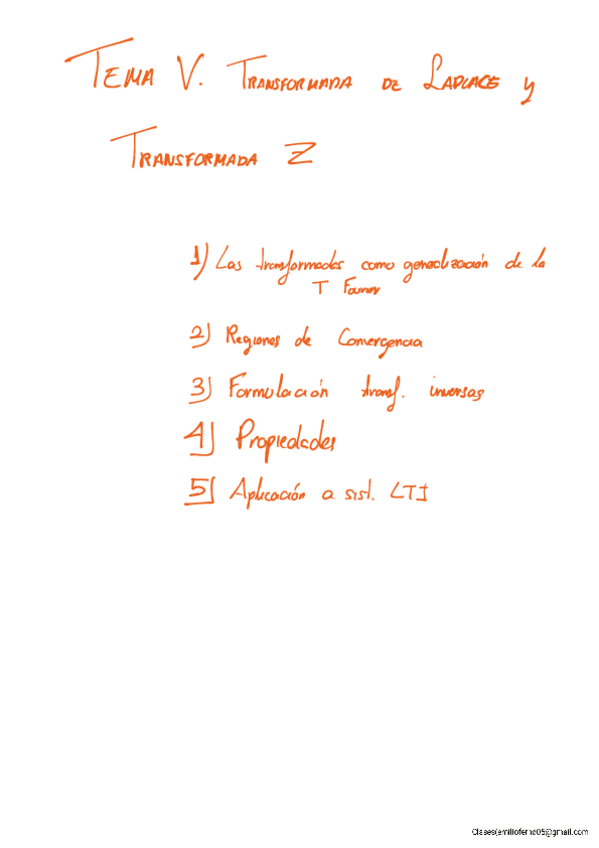 TEMA V. TRANSFORMADA DE LAPLACE y
TRANSFORMADA Z
1) Las transformadas como generalización de la
T Fourier
2) Regiones de Convergencia
3) Formulación transf. inversas
4) Propiedades
5) Aplicación a sist. LTI
Clases(emiliofernd05@gmail.com